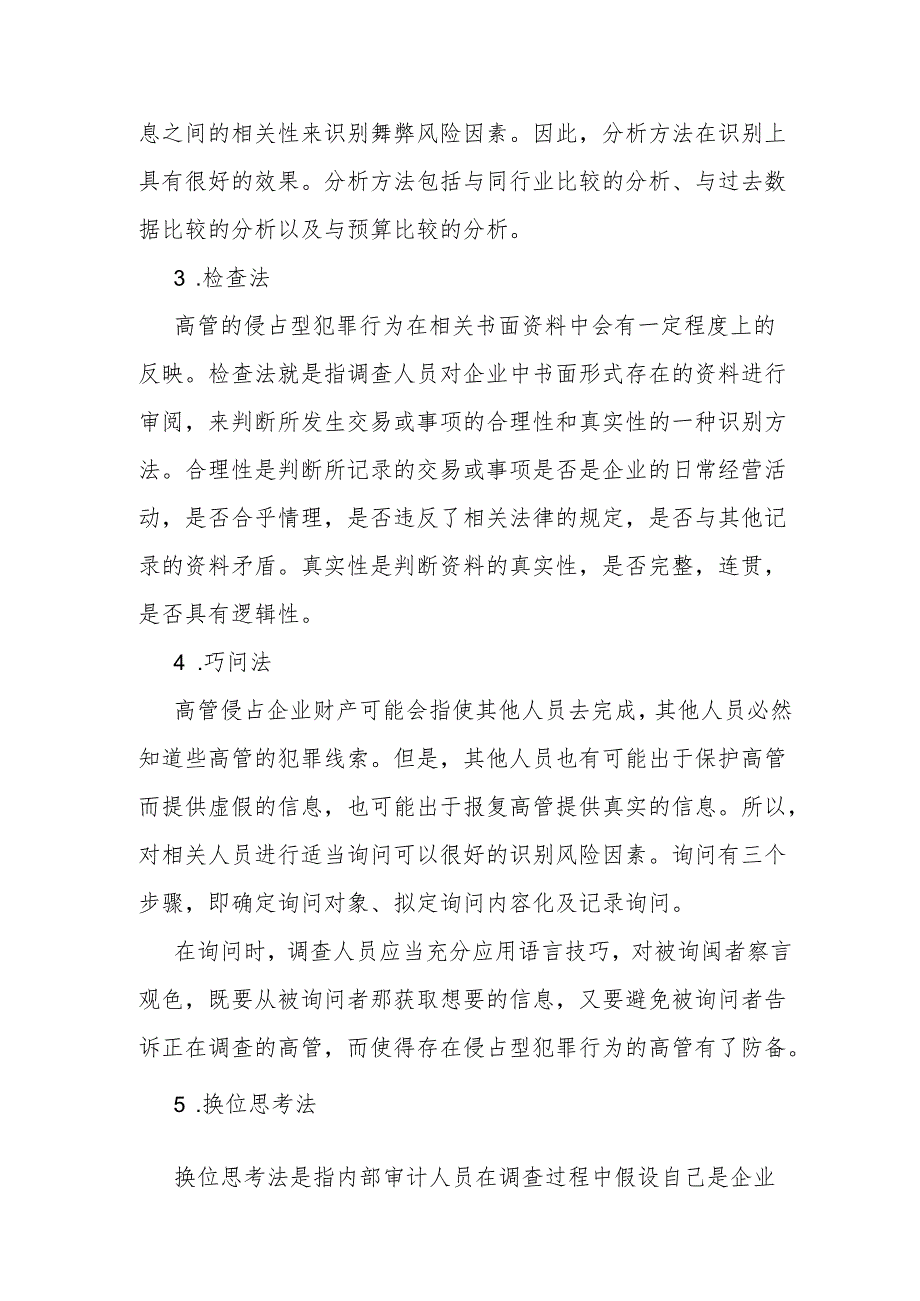 息之间的相关性来识别舞弊风险因素。因此，分析方法在识别上
具有很好的效果。分析方法包括与同行业比较的分析、与过去数
据比较的分析以及与预算比较的分析。
3 .检查法
高管的侵占型犯罪行为在相关书面资料中会有一定程度上的
反映。检查法就是指调查人员对企业中书面形式存在的资料进行
审阅，来判断所发生交易或事项的合理性和真实性的一种识别方
法。合理性是判断所记录的交易或事项是否是企业的日常经营活
动，是否合乎情理，是否违反了相关法律的规定，是否与其他记
录的资料矛盾。真实性是判断资料的真实性，是否完整，连贯，
是否具有逻辑性。
4 .巧问法
高管侵占企业财产可能会指使其他人员去完成，其他人员必然
知道些高管的犯罪线索。但是，其他人员也有可能出于保护高管
而提供虚假的信息，也可能出于报复高管提供真实的信息。所以，
对相关人员进行适当询问可以很好的识别风险因素。询问有三个
步骤，即确定询问对象、拟定询问内容化及记录询问。
在询问时，调查人员应当充分应用语言技巧，对被询闽者察言
观色，既要从被询问者那获取想要的信息，又要避免被询问者告
诉正在调查的高管，而使得存在侵占型犯罪行为的高管有了防备。
5 .换位思考法
换位思考法是指内部审计人员在调查过程中假设自己是企业